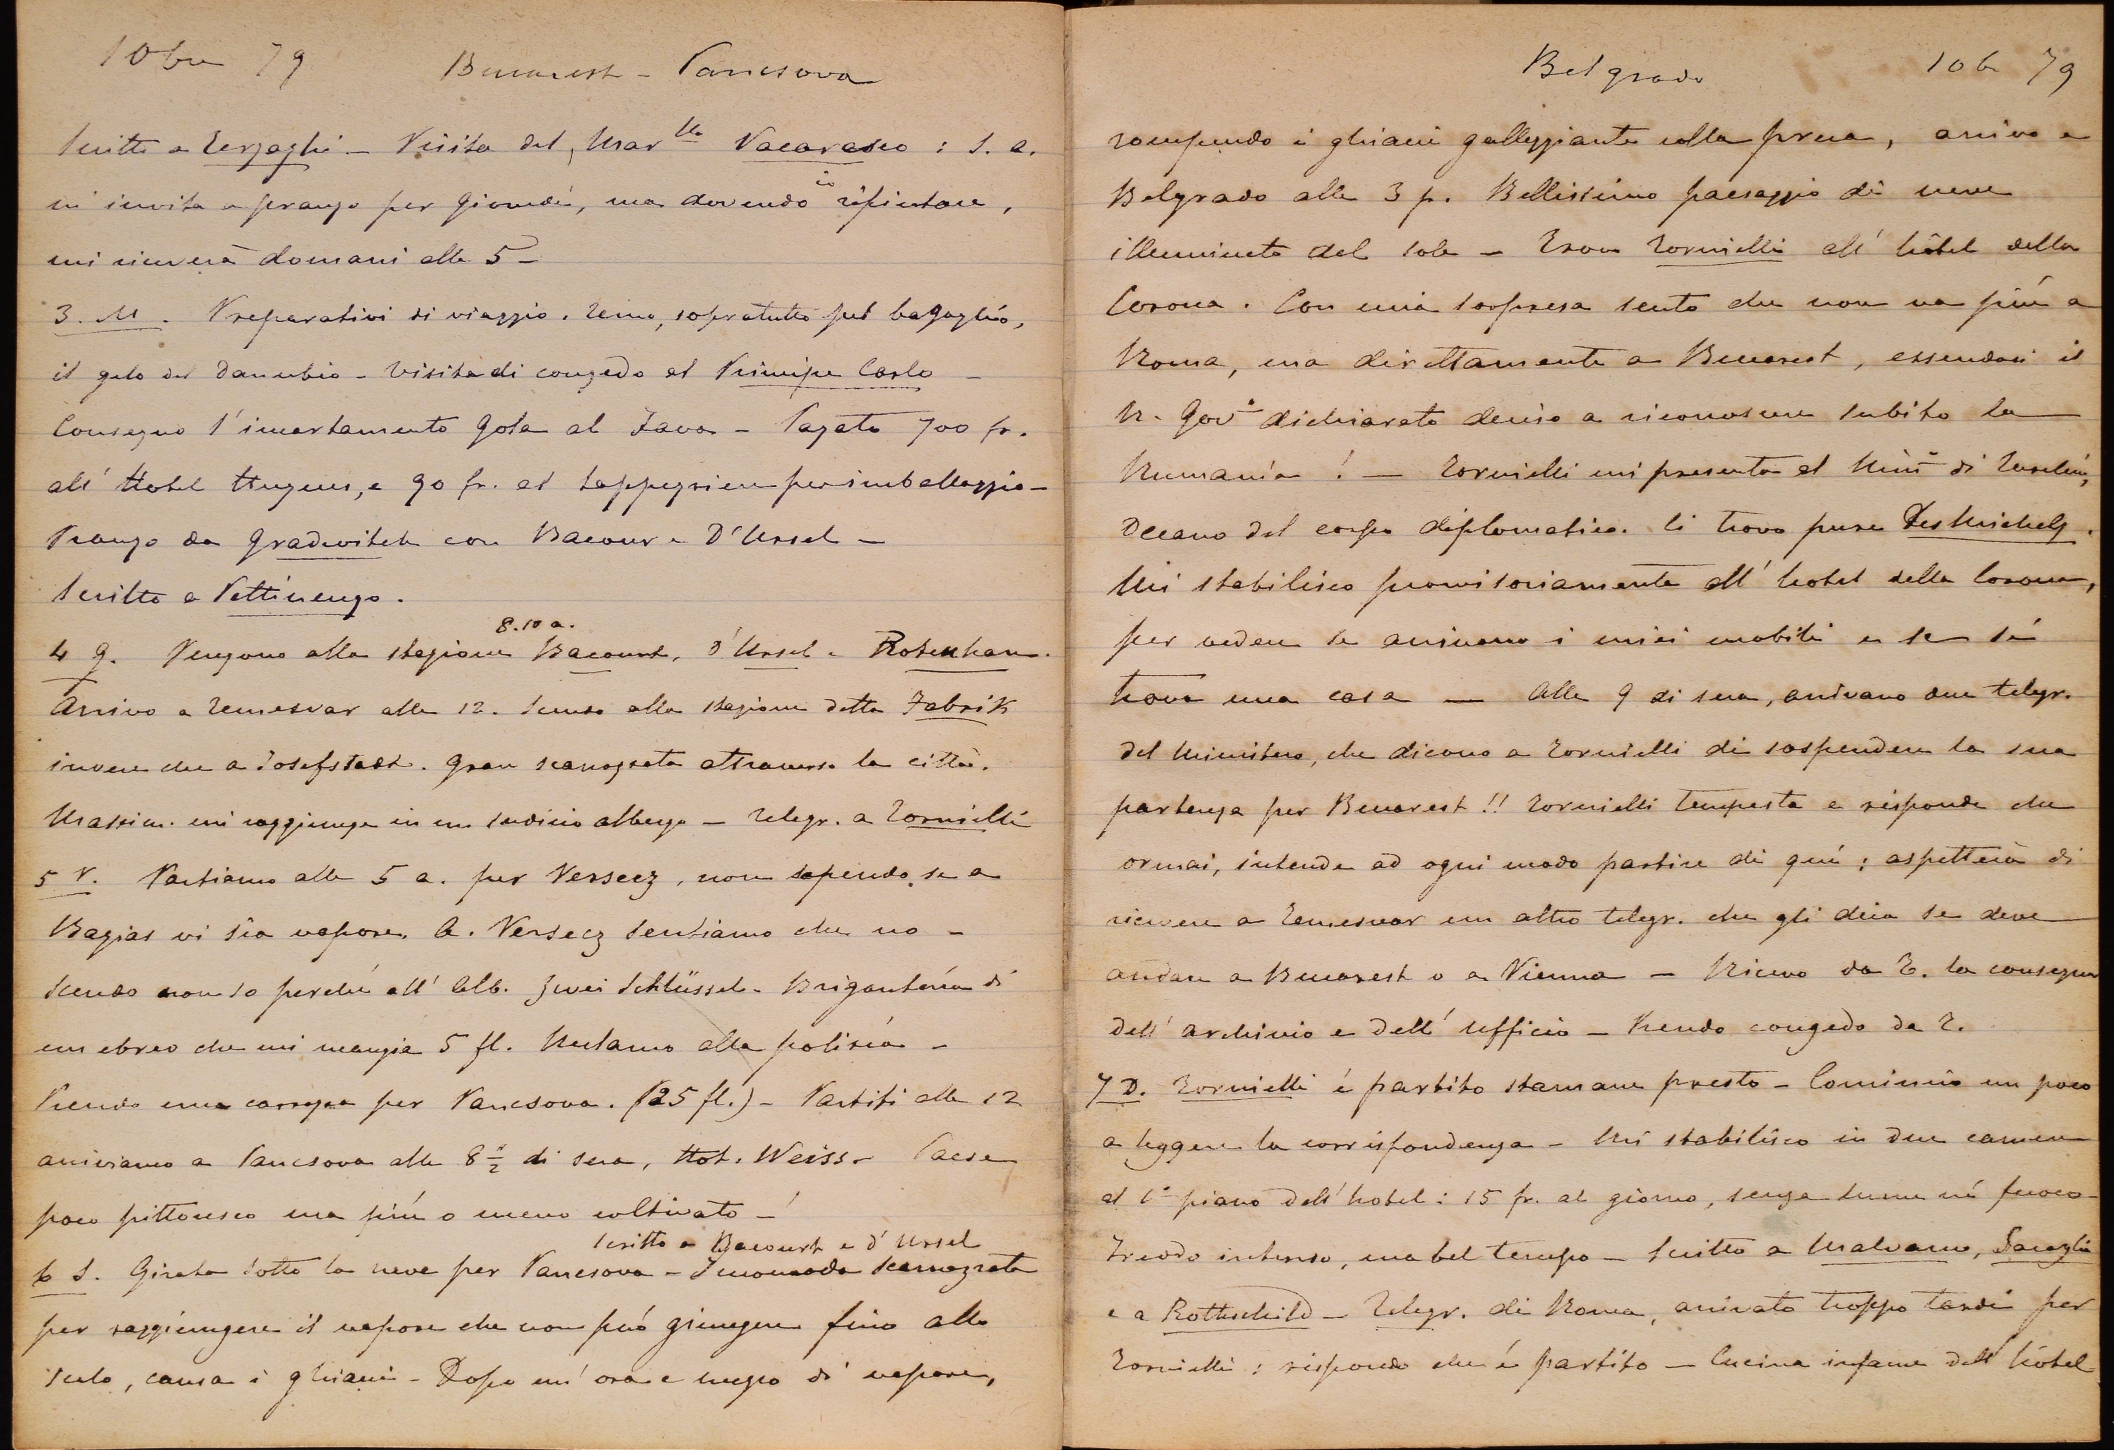 10bre 79 Bucarest - Pancsova
Scritto a Terzaghi - Visita del Mar.llo Vacaresco : S. A.
m'invita a pranzo per giovedí, ma dovendo io rifiutare,
mi riceverà domani alle 5 -
3. M. Preparativi di viaggio. Temo, sopratutto pel bagaglio,
il gelo del Danubio - Visita di congedo al Principe Carlo -
Consegno l'incartamento Gola al Fava - Pagato 700 fr.
all' Hotel Hugues, e 90 fr. al tappezziere per imballaggio -
Pranzo da Gradwitch con Bacourt e D'Ursel -
Scritto a Pettinengo.
4 G. Vengono alla stazione 8.10 a. Bacourt, d'Ursel e Rosenhan.
Arrivo a Temesvar alle 12. Scendo alla stazione detta Fabrik
invece che a Josefstadt. Gran scarrozzata attraverso la città.
Massim. mi raggiunge in un sudicio albergo - Telegr. a Tornielli
5 V. Partiamo alle 5 a. per Versecz, non sapendo se a
Bazias vi sia vapore. A. Versecz sentiamo che no -
Scendo non so perchè all' Alb. Zwei Schlüssel - Briganteria di
un ebreo che mi mangia 5 fl. Reclamo alla polizia -
Prendo una carrozza per Pancsova. (25 fl.) - Partiti alle 12
arriviamo a Pancsova alle 8 1/2 di sera, Hot. Weiss - Paese
poco pittoresco ma piú o meno coltivato -
Scritto a Bacourt e d'Ursel
6 S. Girata sotto la neve per Pancsova - Incomoda scarrozzata
per raggiungere il vapore che non può giungere fino allo
scalo, causa i ghiacci - Dopo un' ora e mezzo di vapore,
Belgrado 10b 79
rompendo i ghiacci galleggianti colla prua, arrivo a
Belgrado alle 3 p. Bellissimo paesaggio di neve
illuminato dal sole - Trovo Tornielli all' hôtel della
Corona. Con mia sorpresa sento che non va piú a
Roma, ma direttamente a Bucarest, essendosi il
R. Gov.o dichiarato deciso a riconoscere subito la
Rumanía ! - Tornielli mi presenta al Min.o di
Decano del corpo diplomatico. Ci trovo pure Des Michels.
Mi stabilisco provvisoriamente all' hotel della Corona,
per vedere se arrivano i miei mobili e se si
trova una casa - Alle 9 di sera, arrivano due telegr.
del Ministero, che dicono a Tornielli di sospendere la sua
partenza per Bucarest !! Tornielli tempesta e risponde che
ormai, intende ad ogni modo partire di quí ; aspetterà di
ricevere a Temesvar un altro telegr. che gli dica se deve
andare a Bucarest o a Vienna - Ricevo da T. la consegna
dell' archivio e dell' ufficio - Prendo congedo da T.
7 D. Tornielli é partito stamane presto - Comincio un poco
a leggere la corrispondenza - Mi stabilisco in due camere
al 1o piano dell' hotel : 15 fr. al giorno, senza lume né fuoco -
Freddo intenso, ma bel tempo - Scritto a Malvano,
e a Rothschild - Telegr. di Roma, arrivato troppo tardi per
Tornielli : rispondo che é partito - Cucina infame dell' hôtel